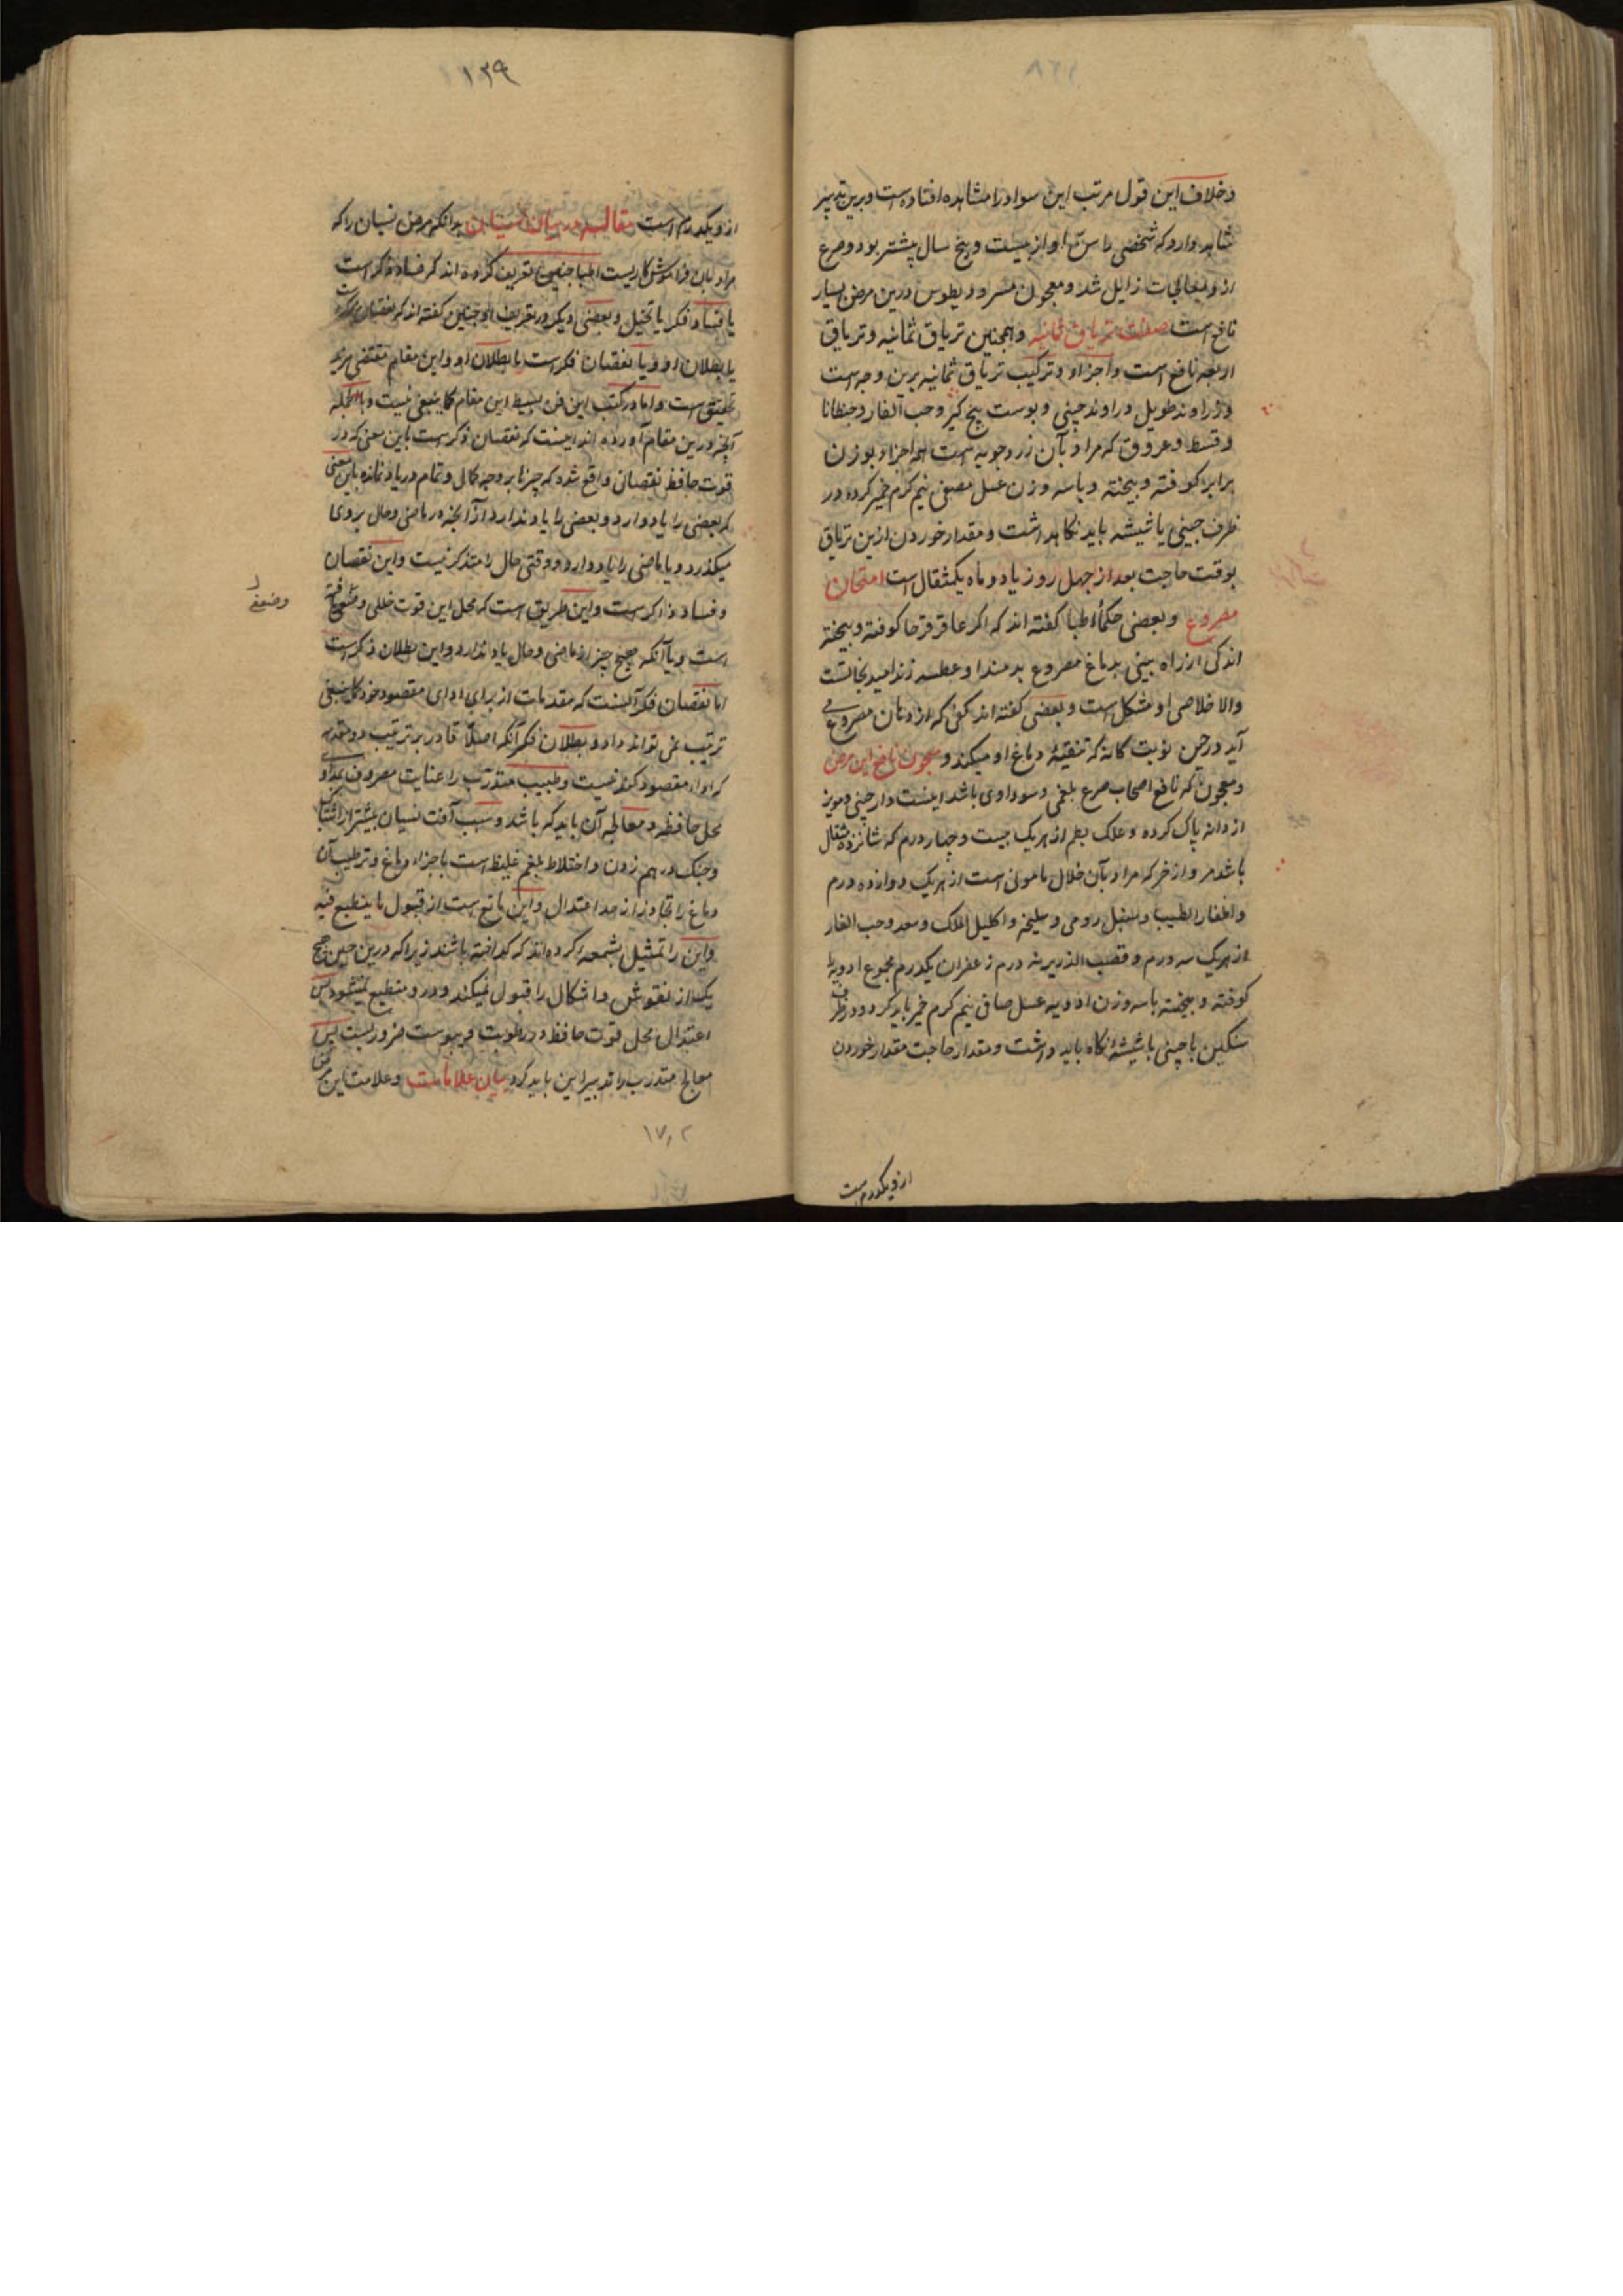 وخلاف این قول مرتب این سواد را مشاهده افتاده است و برین تدبیر
شاهد دارد که شخصی را سن تها او از بیست و پنج سال پیشتر بود و صرع
ازو بمعالجات زایل شد و معجون مسرودیطوس درین مرض بسیار
نافع است صفت تریاق ثمانیه و همچنین تریاق ثمانیه و تریاق
اربعه نافع است و اجزاء و ترکیب تریاق ثمانیه برین وجه است
زراوند طویل و راوند چینی و پوست بیخ کبر و حب الغار و جنطانا
و قسط و عروق که مراد بآن زردچوبه است همه اجزاء بوزن
برابر کوفته و بیخته و با سه وزن عسل مصفی نیم گرم خمیر کرده در
ظرف چینی یا شیشه باید نگاهداشت و مقدار خوردن ازین تریاق
بوقت حاجت بعد از چهل روز یا دو ماه یکمثقال است امتحان
مصروع و بعضی حکماء اطبا کفته اند که اکر عاقرقرحا کوفته و بیخته
اندکی از راه بینی بدماغ مصروع بدمند او عطسه زند امید نجاتست
والا خلاصی او مشکل است و بعضی کفته اند کفی که از دهان مصروع می
آید در حین نوبت کانه که تنقیهٔ دماغ او میکند و معجون نافع این مرض
و معجون که نافع اصحاب صرع بلغمی و سوداوی باشد اینست دارچینی و مویز
از دانه پاک کرده و علک بطم از هریک بیست و چهار درم که شانزده مثقال
باشد مر و اذخر که مراد بآن خلال مامونی است از هریک دوازده درم
و اظفار الطیب و سنبل رومی و سلیخه و اکلیل الملک و سعد و حب الغار
از هریک سه درم و قصب الذریره سه درم زعفران یکدرم مجموع ادویه را
کوفته و بیخته با سه وزن ادویه عسل صافی نیم کرم خمیر باید کرد و در ظرف
سنکین یا چینی یا شیشه نکاه باید داشت و مقدار حاجت مقدار خوردن
ازو یکدرم است
۱۲۹
ازو یکدرم است مقاله در بیان نسیان بدانکه مرض نسیان را که
مراد بآن فراموش کاریست اطبا چنین تعریف کرده اند که فساد ذکر است
یا فساد فکر یا تخیل و بعضی دیکر در تعریف او چنین کفته اند که نقصان ذکر است
یا بطلان او و یا نقصان فکرست یا بطلان او و این مقام مقتضی مزید
تحقیق است و اما در کتب این فن بسط این مقام کما ینبغی نیست و بالجمله
آنچه درین مقام آورده اند اینست که نقصان ذکرست باین معنی که در
قوت حافظه نقصان واقع شده که چیزها بر وجه کمال و تمام در یاد نمانده باین معنی
که بعضی را یاد دارد و بعضی را یاد ندارد از آنچه در ماضی و حال بروی
میکذرد و یا ماضی را یاد دارد و وقتی حال را متذکر نیست و این نقصان
و فساد ذاکرست و این طریق است که محل این قوت خللی و ضعفی یافته
وضعفی
است و یا آنکه هیچ چیز از ماضی و حال یاد ندارد و این بطلان ذکرست
اما نقصان فکر آنست که مقدمات از برای ادای مقصود خود کما ینبغی
ترتیب نمی تواند داد و بطلان فکر آنکه اصلا قادر بر ترتیب دو مقدمه
که اداء مقصود کند نیست و طبیب متدرب را عنایت مصروف بمداوای
محل حافظه و معالجه آن باید که باشد و سبب آفت نسیان بیشتر از اشتباک
و جنک درهم زدن و اختلاط بلغم غلیظ است باجزاء دماغ و ترطیب آن
دماغ را تجاوز از حد اعتدال و این مانع است از قبول ما ینطبع فیه
و این را تمثیل بشمعه کرده اند که کداخته باشند زیرا که درین حین هیچ
یک از نقوش و اشکال را قبول نمیکند و درو منطبع نمیشود پس
اعتدال محل قوت حافظه در رطوبت و یبوست ضروریست پس
معالج متدرب را تدبیر این باید کرد بیان علامات و علامت این مرض